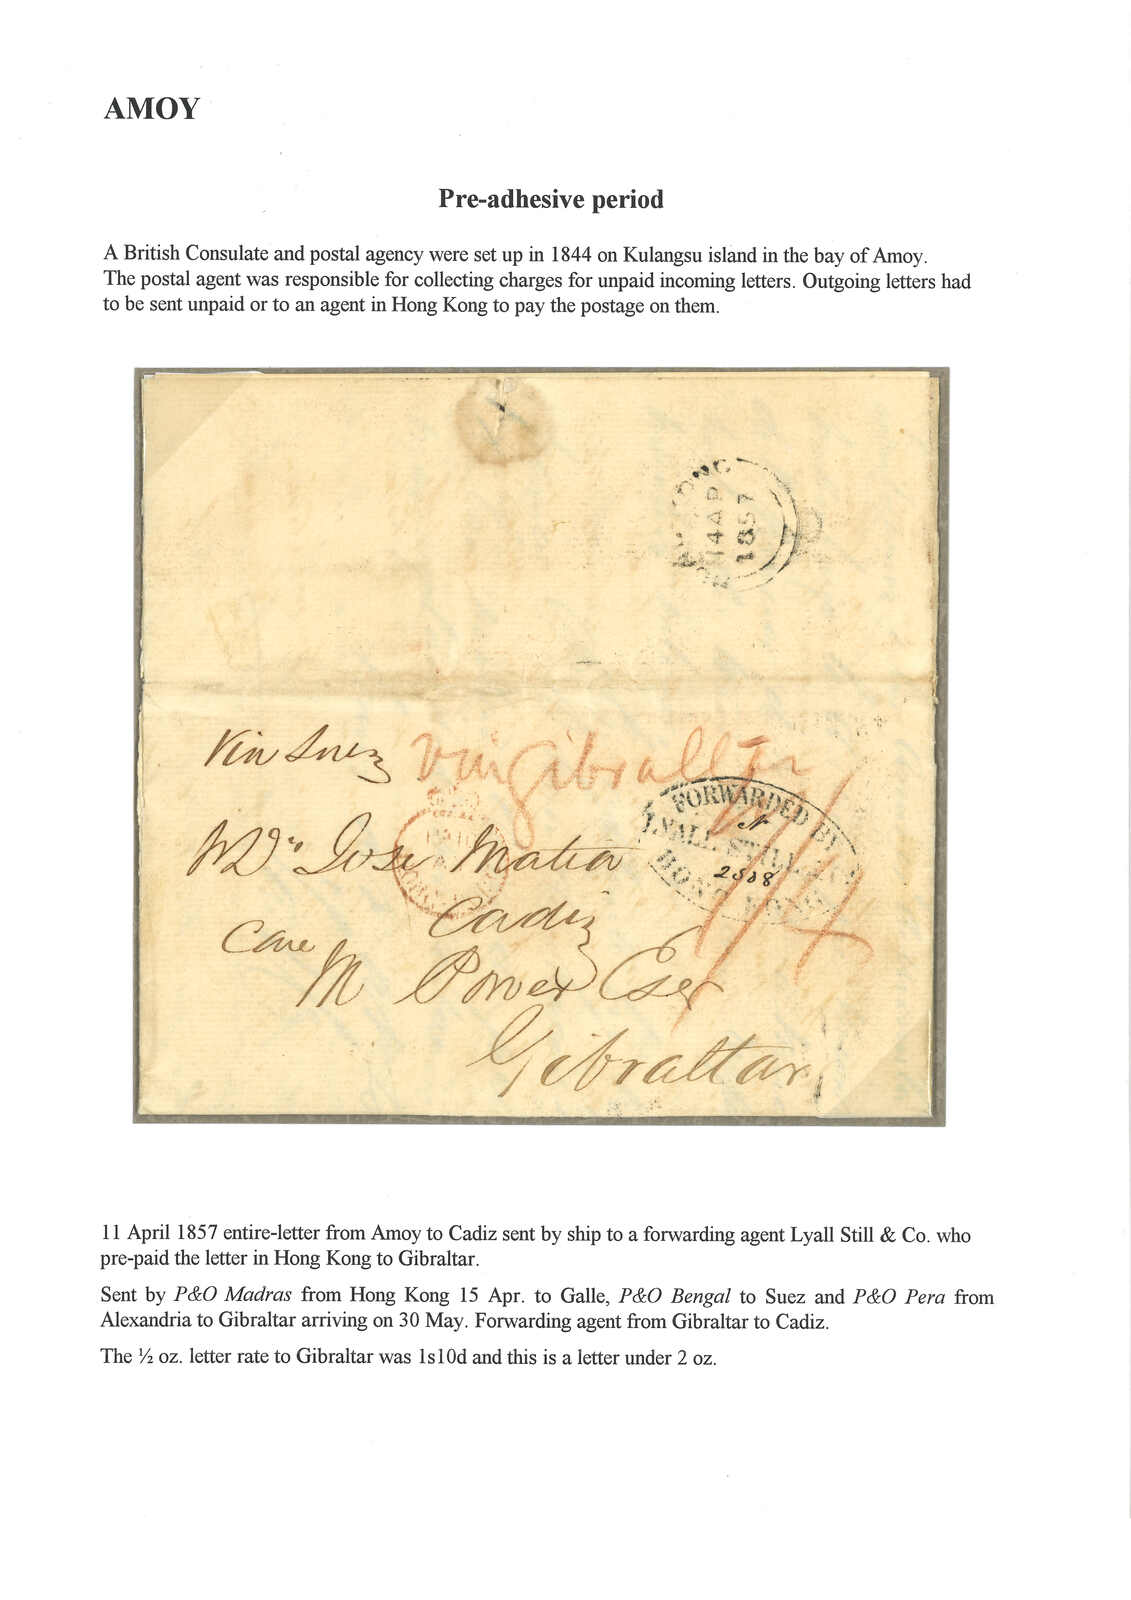 AMOY
Pre-adhesive period
A British Consulate and postal agency were set up in 1844 on Kulangsu island in the bay of Amoy.
The postal agent was responsible for collecting charges for unpaid incoming letters. Outgoing letters had
to be sent unpaid or to an agent in Hong Kong to pay the postage on them.
HONG KONG
14 AP
1857
Via Suez
via Gibraltar
FORWARDED BY
LYALL STILL & Co
HONG KONG
2508
1/4
Dn Jose Matia
Cadiz
Care
M Power Esqr
Gibraltar
11 April 1857 entire-letter from Amoy to Cadiz sent by ship to a forwarding agent Lyall Still & Co. who
pre-paid the letter in Hong Kong to Gibraltar.
Sent by P&O Madras from Hong Kong 15 Apr. to Galle, P&O Bengal to Suez and P&O Pera from
Alexandria to Gibraltar arriving on 30 May. Forwarding agent from Gibraltar to Cadiz.
The ½ oz. letter rate to Gibraltar was 1s10d and this is a letter under 2 oz.